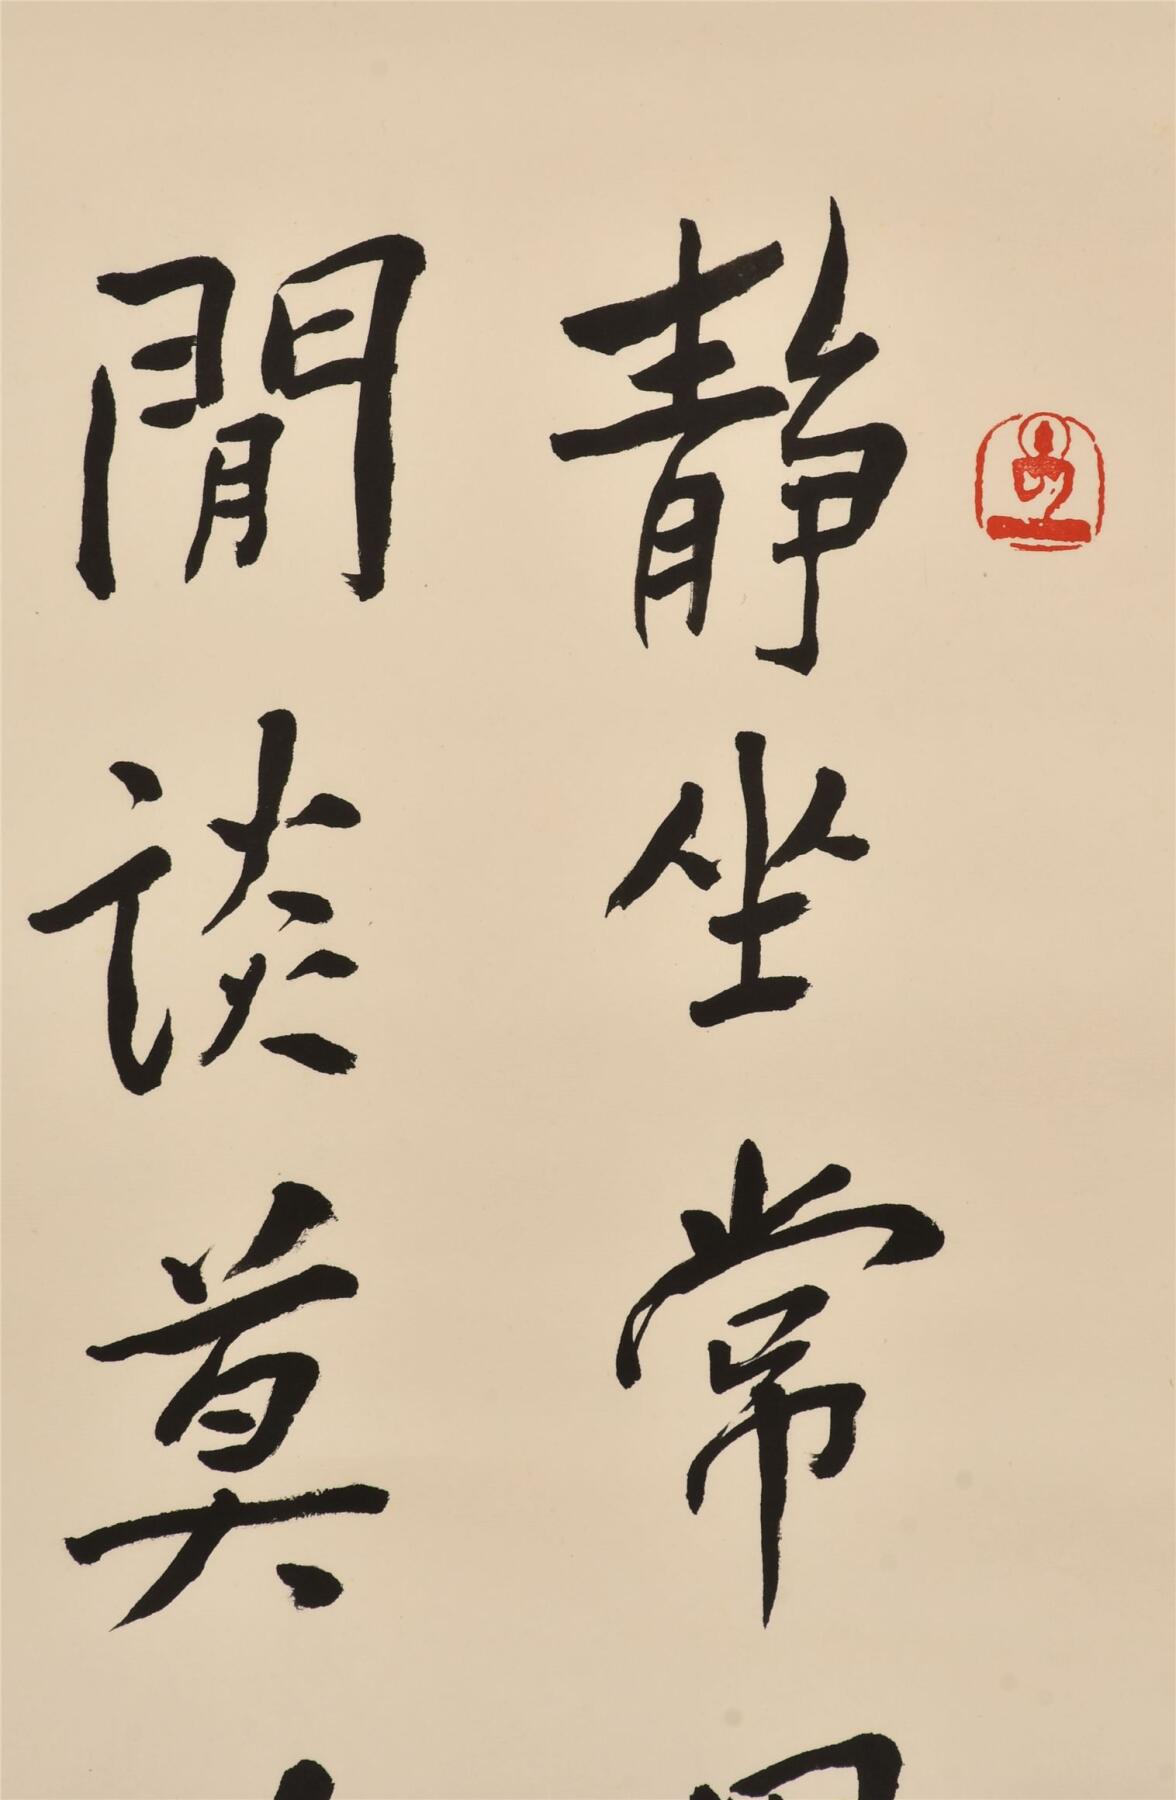 靜坐常
閒談莫